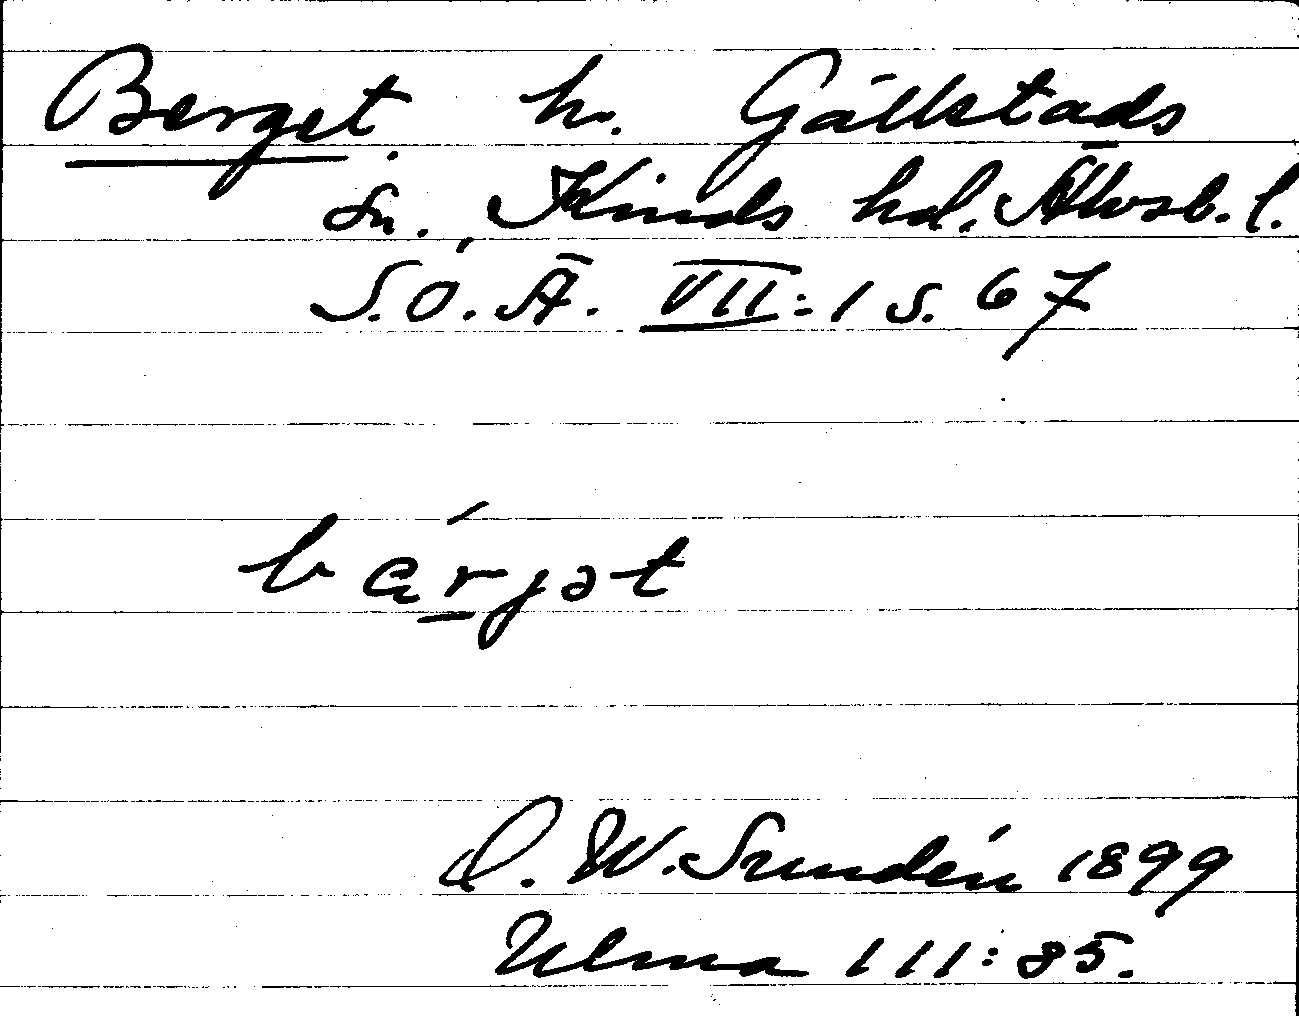 Berget. h. Gällstads
sn., Kinds hd. Älvsb. l.
S.O.Ä. VII:1 s. 67
bárjət
D. W. Sundén 1899
Ulma 111:85.